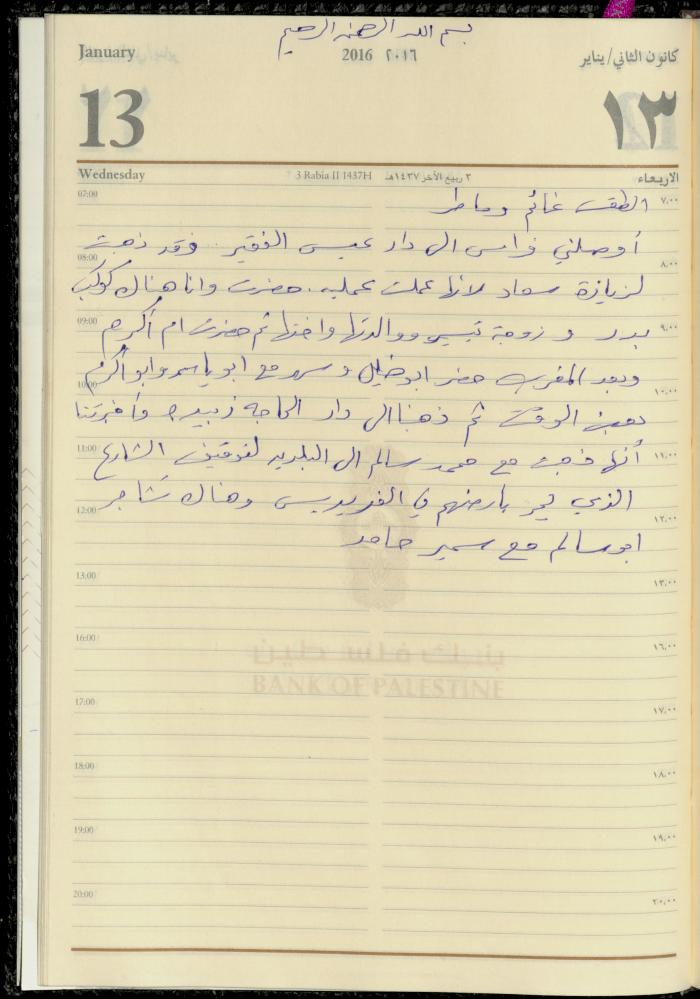 بسم الله الرحمن الرحيم
January 2016 ٢٠١٦ كانون الثاني/يناير
13 ١٣
Wednesday 3 Rabia II 1437H ٣ ربيع الآخر ١٤٣٧هـ الاربعاء
07:00 الطقس غائم وماطر ٧,٠٠
أوصلني فراس الى دار عيسى الفقير فقد ذهبت
08:00 ٨,٠٠
لزيارة سعاد لانها عملت عمليه. حضرت وانا هناك كوكب
09:00 ٩,٠٠
بدر و زوجة تيسير ووالدتها واختها ثم حضرت ام أكرم
وبعد المغرب حضر ابو خليل وسهر مع ابو ياسر وابو أكرم
10:00 ١٠,٠٠
بعض الوقت ثم ذهبنا الى دار الحاجه زبيده وأخبرتنا
11:00 أنها ذهبت مع محمد سالم الى البلديه لتوقيف الشارع ١١,٠٠
الذي يمر بارضهم في الفريديس وهناك تشاجر
12:00 ١٢,٠٠
ابو سالم مع سمير حامد
13:00 ١٣,٠٠
16:00 ١٦,٠٠
بنك فلسطين
BANK OF PALESTINE
17:00 ١٧,٠٠
18:00 ١٨,٠٠
19:00 ١٩,٠٠
20:00 ٢٠,٠٠